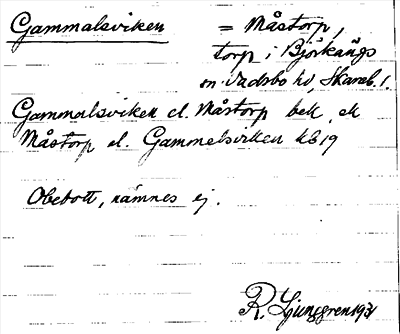 Gammalsviken = Måstorp,
torp i Björkängs
sn Vadsbo hd, Skarab. l.
Gammalsviken el. Måstorp bek, ek
Måstorp el. Gammelsviken kb 19
Obebott, nämnes ej.
R. Ljunggren 1931